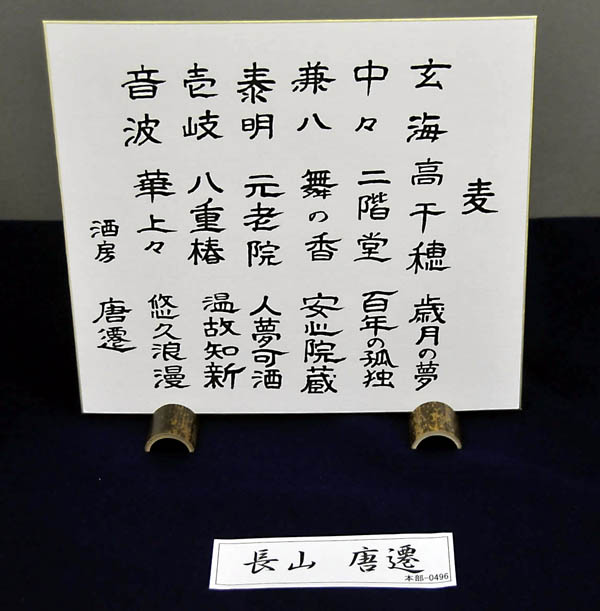 麦
玄海 高千穂 歳月の夢
中々 二階堂 百年の孤独
兼八 舞の香 安心院蔵
泰明 元老院 人夢可酒
壱岐 八重椿 温故知新
音波 華上々 悠久浪漫
酒房 唐遷
長山 唐遷
本部-0496